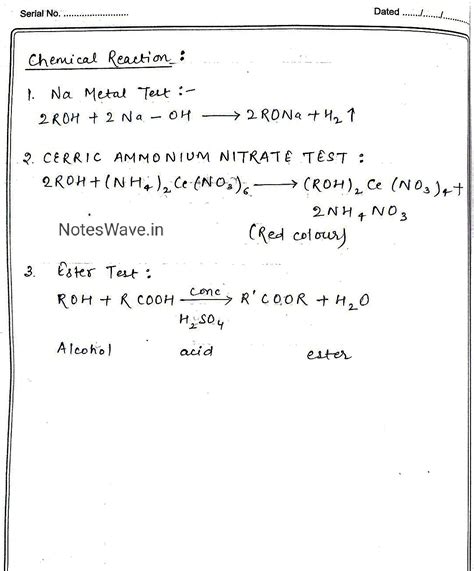 Serial No. ............................
Dated ....../....../......
Chemical Reaction :
1. Na Metal Test :-
2ROH + 2 Na – OH ⟶ 2 RONa + H₂ ↑
2. CERRIC AMMONIUM NITRATE TEST :
2ROH + (NH₄)₂ Ce (NO₃)₆ ⟶ (ROH)₂ Ce (NO₃)₄ +
2NH₄ NO₃
NotesWave.in
(Red colour)
3. Ester Test :
ROH + R COOH ⟶ R' COOR + H₂O
Conc
H₂SO₄
Alcohol acid ester